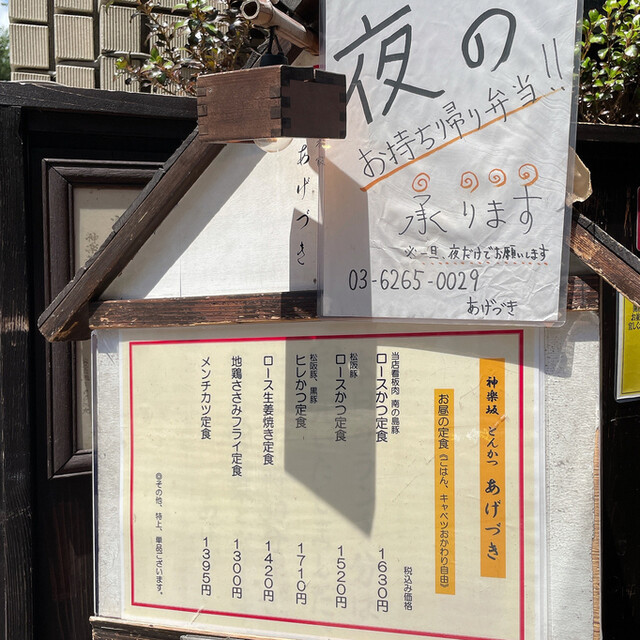 夜の
お持ち帰り弁当!!
承ります
※一旦、夜だけでお願いします
03-6265-0029
あげづき
あげづき
神楽坂 とんかつ あげづき
お昼の定食 (ごはん、キャベツおかわり自由)
税込み価格
当店看板肉 南の島豚
ロースかつ定食 1630円
松阪豚
ロースかつ定食 1520円
松阪豚、黒豚
ヒレかつ定食 1710円
ロース生姜焼き定食 1420円
地鶏ささみフライ定食 1300円
メンチカツ定食 1395円
◎その他、特上、単品ございます。